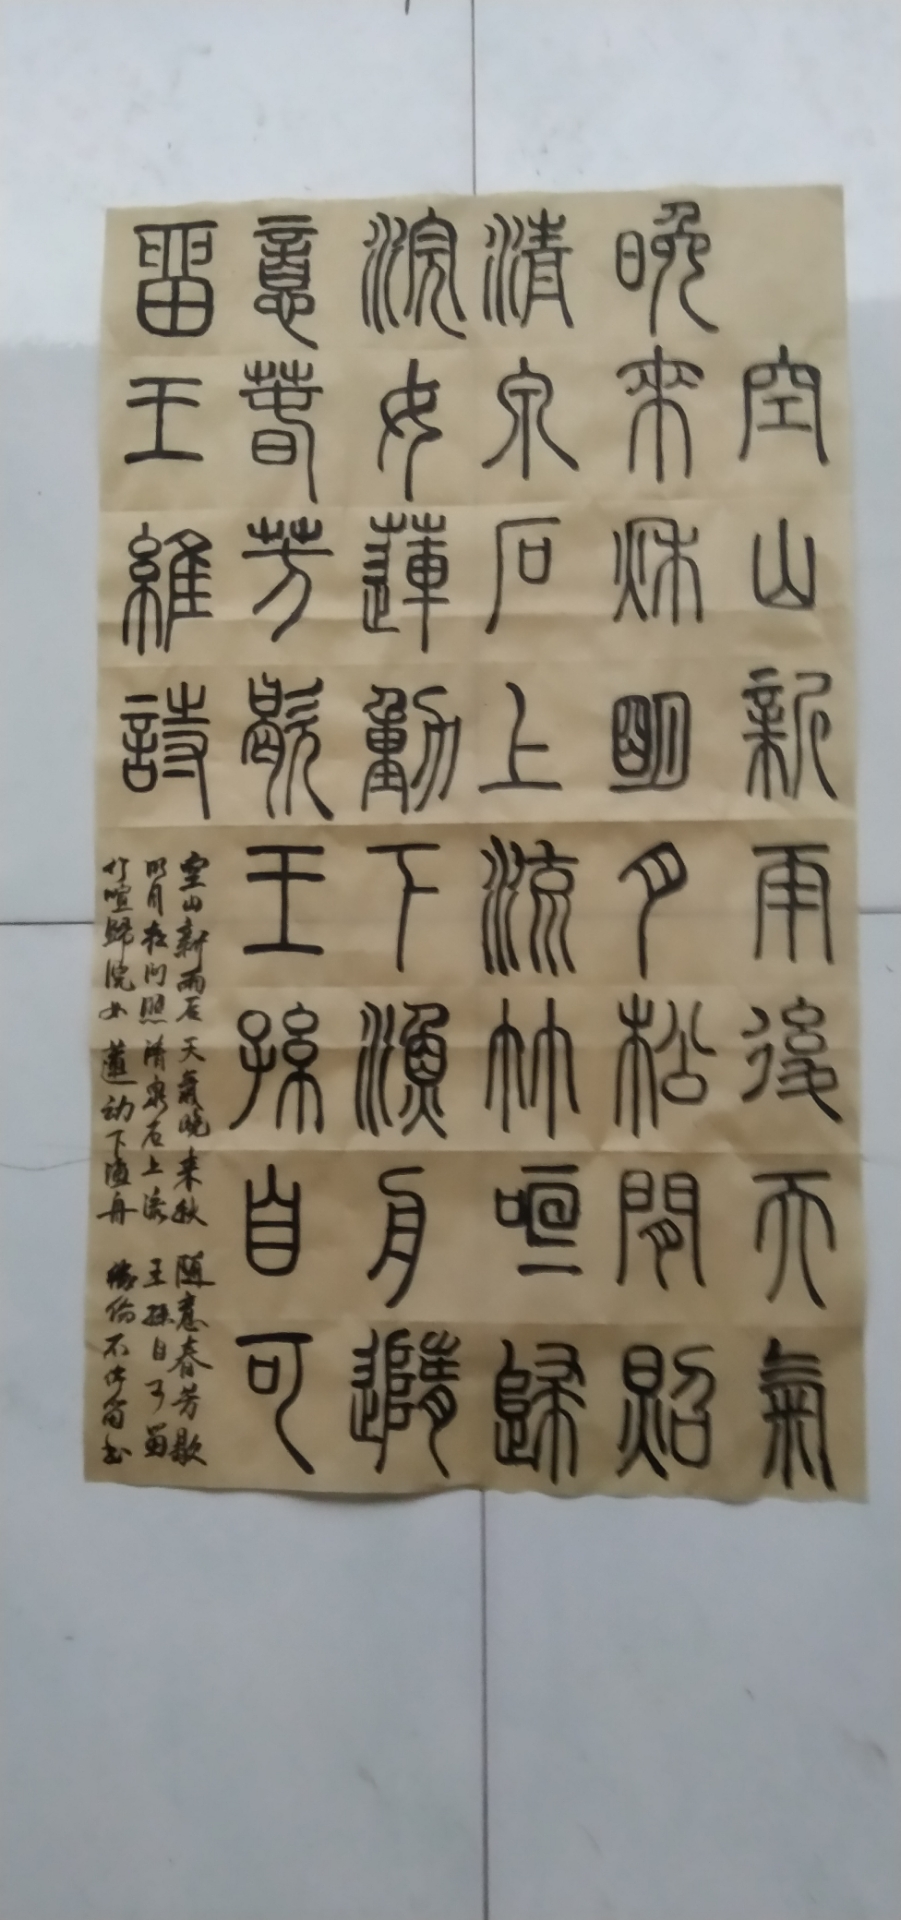 空山新雨後天氣
晚來秋明月松間照
清泉石上流竹喧歸
浣女蓮動下漁舟隨
意春芳歇王孫自可
留王維詩
空山新雨后天氣晚来秋
明月松间照清泉石上流
竹喧歸浣女蓮动下渔舟
随意春芳歇
王孫自可留
书